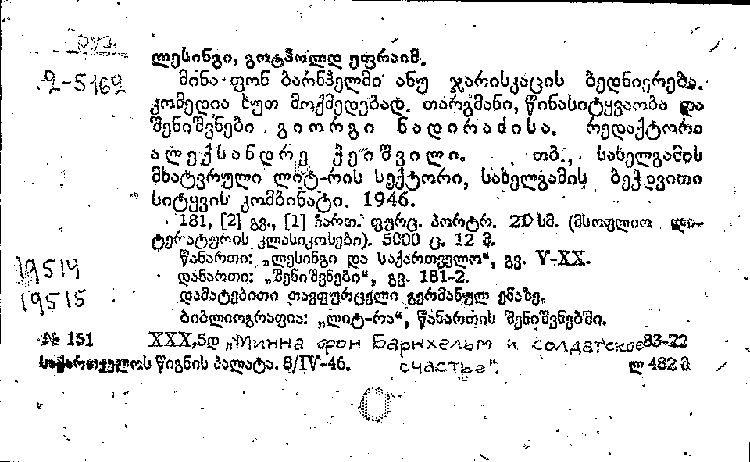 ლესინგი, გოტჰოლდ ეფრაიმ.
2-5162
მინა ფონ ბარნჰელმი ანუ ჯარისკაცის ბედნიერება.
კომედია ხუთ მოქმედებად. თარგმანი, წინასიტყვაობა და
შენიშვნები გიორგი ნადირაძისა. რედაქტორი
ალექსანდრე ქუთშვილი. თბ., სახელგამის
მხატვრული ლიტ-რის სექტორი, სახელგამის ბეჭდვითი
სიტყვის კომბინატი. 1946.
181, [2] გვ., [1] ჩართ. ფურც. პორტრ. 20 სმ. (მსოფლიო ლი-
ტერატურის კლასიკოსები). 5000 ც. 12 მ.
წანართი: „ლესინგი და საქართველო“, გვ. V-XX.
19514
დანართი: „შენიშვნები“, გვ. 181-2.
19515
დამატებითი თავფურცელი გერმანულ ენაზე.
ბიბლიოგრაფია: „ლიტ-რა“, წანართის შენიშვნებში.
№ 151 XXX,5დ „Минна фон Барнхельм и солдатское 83-22
საქართველოს წიგნის პალატა. 8/IV-46. счастье“. ლ 482 მ